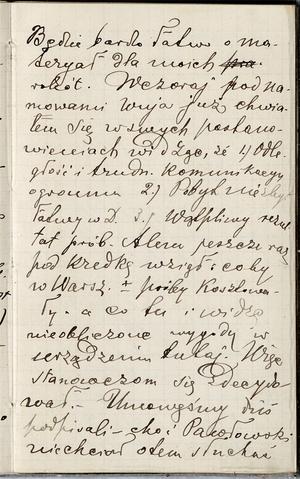 Będzie bardo łatwo o ma-
teryał dla moich
robót. Wczoraj pod na-
mowami wuja już chwia-
łem się w swych postano-
wieniach widząc, że 1) Odle-
głość i trudn. komunikacyj
ogromna 2.) Pobyt niezbyt
łatwy w D. 3.) Wątpliwy rezul
tat prób. Alem jeszcze raz
pod kredkę wziął: coby
w Warsz. ± próby kosztowa-
ły. a co tu i widzę
nieobliczone wygody w
urządzeniu tutaj. Więc
stanowczom się zdecydo
wał. Umowęśmy dziś
podpisali - choć Pawłowski
niechciał o tem słuchać